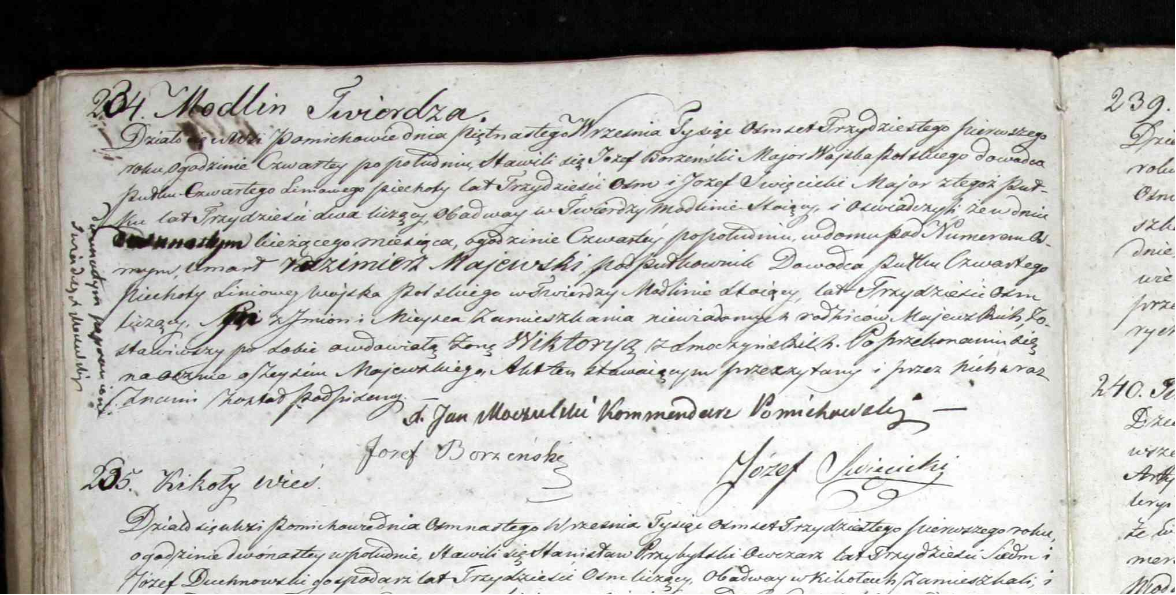 234. Modlin Twierdza.
Działo się w wsi Pomichowie dnia piętnastego Września Tysiąc Osmset Trzydziestego pierwszego
roku o godzinie Czwartey po południu, Stawili się Jozef Borzeński Major Woyska Polskiego dowodca
Pułku Czwartego Liniowego piechoty lat Trzydzieści Osm i Jozef Swięcicki Major z tegoż Puł-
ku lat Trzydzieści dwa liczący, Obadway w Twierdzy Modlinie Stoiący, i Oswiadczyli że w dniu
dwunastym bieżącego miesiąca, o godzinie Czwartey popołudniu, w domu pod Numerem Os-
mym, Umarł Kazimierz Majewski, podpułkownik Dowodca Pułku Czwartego
Piechoty Liniowey Woyska Polskiego w Twierdzy Modlinie stoiący, lat Trzydzieści Osm
liczący, Syn z Jmion i Mieysca Zamieszkania niewiadomych rodzicow Majewskich, Zo-
stawiwszy po sobie owdowiałą żonę Wiktoryą z Smoczynskich. Po przekonaniu się
naocznie o Zeyściu Majewskiego, Akt ten stawaiącym przeczytany i przez nich wraz
z Nami został podpisany.
X. Jan Moczulski Kommendarz Pomichowski
Jozef Borzeński
Józef Swięcicki
Dwunastym poprawienie
Swiadczę Moczulski
235. Kikoły wieś.
Działo się w wsi Pomichowie dnia Osmnastego Września Tysiąc Osmset Trzydziestego pierwszego roku,
o godzinie dwonastey w południe, Stawili się Stanisław Przybylski Owczarz lat Trzydzieści Siedm i
Józef Duchnowski gospodarz lat Trzydzieści Osm liczący, Obadway w Kikołach Zamieszkali, i
239.
roku
240.